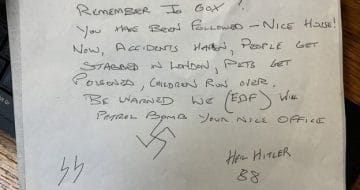 REMEMBER JO COX!
YOU HAVE BEEN FOLLOWED - NICE HOUSE!
NOW, ACCIDENTS HAPEN, PEOPLE GET
STABBED IN LONDON, PETS GET
POISONED, CHILDREN RUN OVER.
BE WARNED WE (EDF) WILL
PETROL BOMB YOUR NICE OFFICE
HEIL HITLER
88